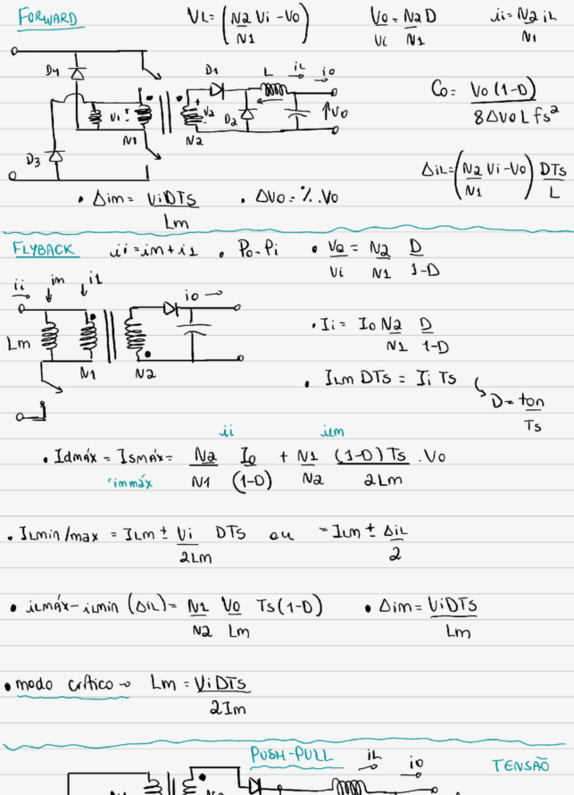 FORWARD
VL = (N2/N1 Vi - Vo)
Vo/Vi = N2/N1 D
ii = N2/N1 iL
D4
D1
L
iL
io
Vi
V2
D2
Vo
N1
N2
D3
Co = Vo (1-D) / 8ΔVo L fs²
ΔiL = (N2/N1 Vi - Vo) DTs/L
• Δim = ViDTs/Lm
• ΔVo = %. Vo
FLYBACK
ii = im + i1
• Po = Pi
• Vo/Vi = N2/N1 D/1-D
ii
im
i1
io
Lm
N1
N2
• Ii = Io N2/N1 D/1-D
• ILm DTs = Ii Ts
D = ton/Ts
ii
iLm
• Idmáx = Ismáx = N2/N1 Io/(1-D) + N1/N2 (1-D)Ts/2Lm . Vo
immáx
• ILmin/max = ILm ± Vi/2Lm DTs ou = ILm ± ΔiL/2
• iLmáx - iLmin (ΔiL) = N1/N2 Vo/Lm Ts(1-D)
• Δim = ViDTs/Lm
• modo crítico → Lm = ViDTs/2Im
PUSH-PULL
iL
io
TENSÃO